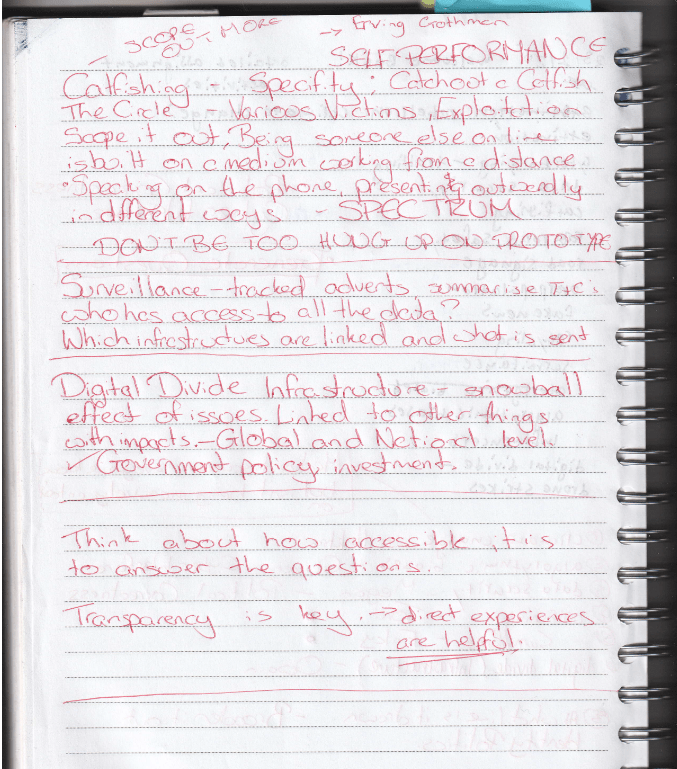 SCOPE OUT MORE
→ Erving Goffman
SELF PERFORMANCE
Catfishing - Specifity: Catchout a Catfish
The Circle - Various Victims, Exploitation
Scope it out, Being someone else online
is built on a medium working from a distance
• Speaking on the phone, presenting outwardly
in different ways - SPECTRUM
DON'T BE TOO HUNG UP ON PROTOTYPE
Surveillance - tracked adverts summarise T+C's
who has access to all the data?
Which infrastructures are linked and what is sent
Digital Divide Infrastructure - snowball
effect of issues. Linked to other things
with impacts. - Global and National level.
✓ Government policy investment.
Think about how accessible it is
to answer the questions.
Transparency is key. → direct experiences
are helpful.